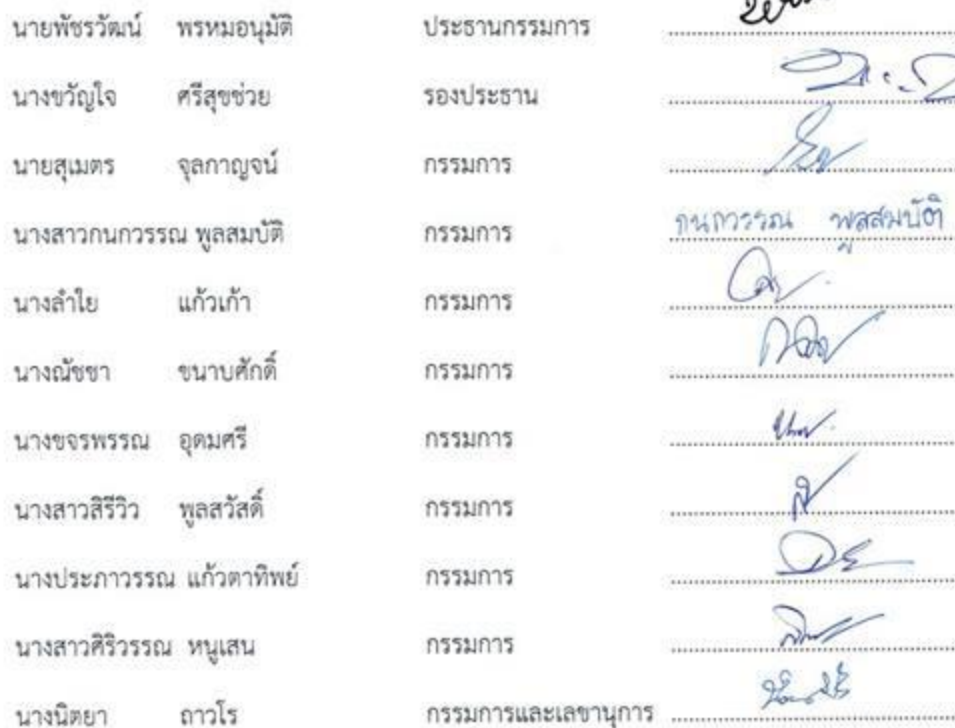 นายพัชรวัฒน์ พรหมอนุมัติ ประธานกรรมการ
นางขวัญใจ ศรีสุขช่วย รองประธาน
นายสุเมตร จุลกาญจน์ กรรมการ
นางสาวกนกวรรณ พูลสมบัติ กรรมการ กนกวรรณ พูลสมบัติ
นางลำใย แก้วเก้า กรรมการ
นางณัชชา ขนาบศักดิ์ กรรมการ
นางขจรพรรณ อุดมศรี กรรมการ
นางสาวสิรีวิว พูลสวัสดิ์ กรรมการ
นางประภาวรรณ แก้วตาทิพย์ กรรมการ
นางสาวศิริวรรณ หนูเสน กรรมการ
นางนิตยา ถาวโร กรรมการและเลขานุการ